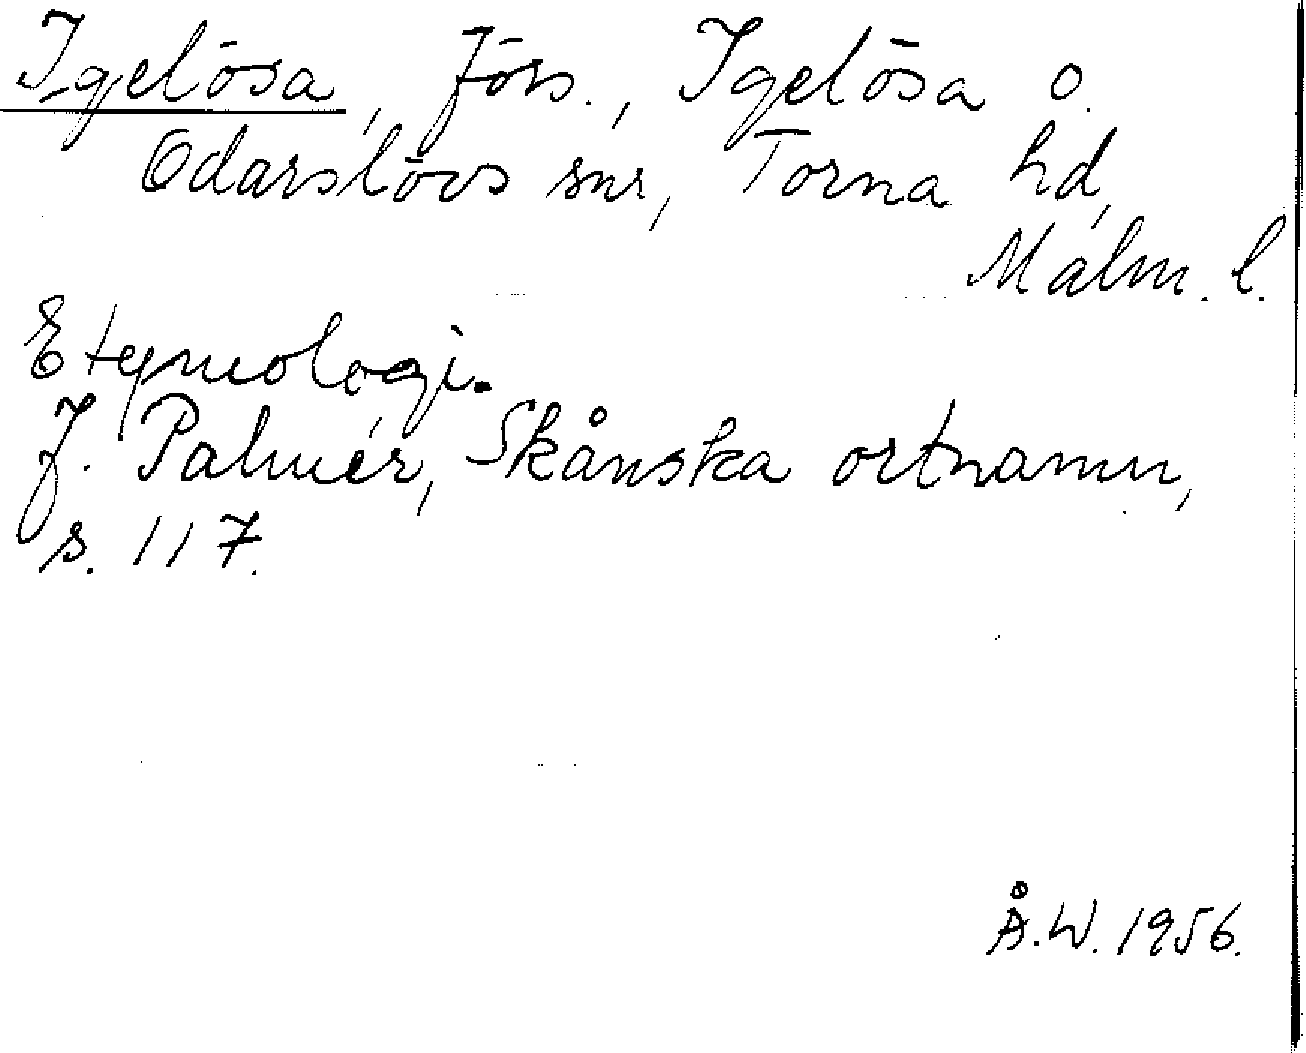 Igelösa, förs., Igelösa o.
Odarslövs snr, Torna hd,
Malm. l.
Etymologi.
J. Palmér, Skånska ortnamn,
s. 117.
Å.W. 1956.